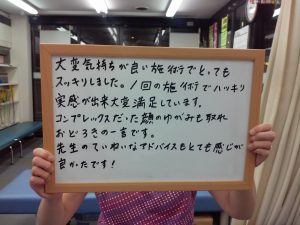 大変気持ちが良い施術でとっても
スッキリしました。1回の施術でハッキリ
実感が出来大変満足しています。
コンプレックスだった顔のゆがみも取れ
おどろきの一言です。
先生のていねいなアドバイスもとても感じが
良かったです!